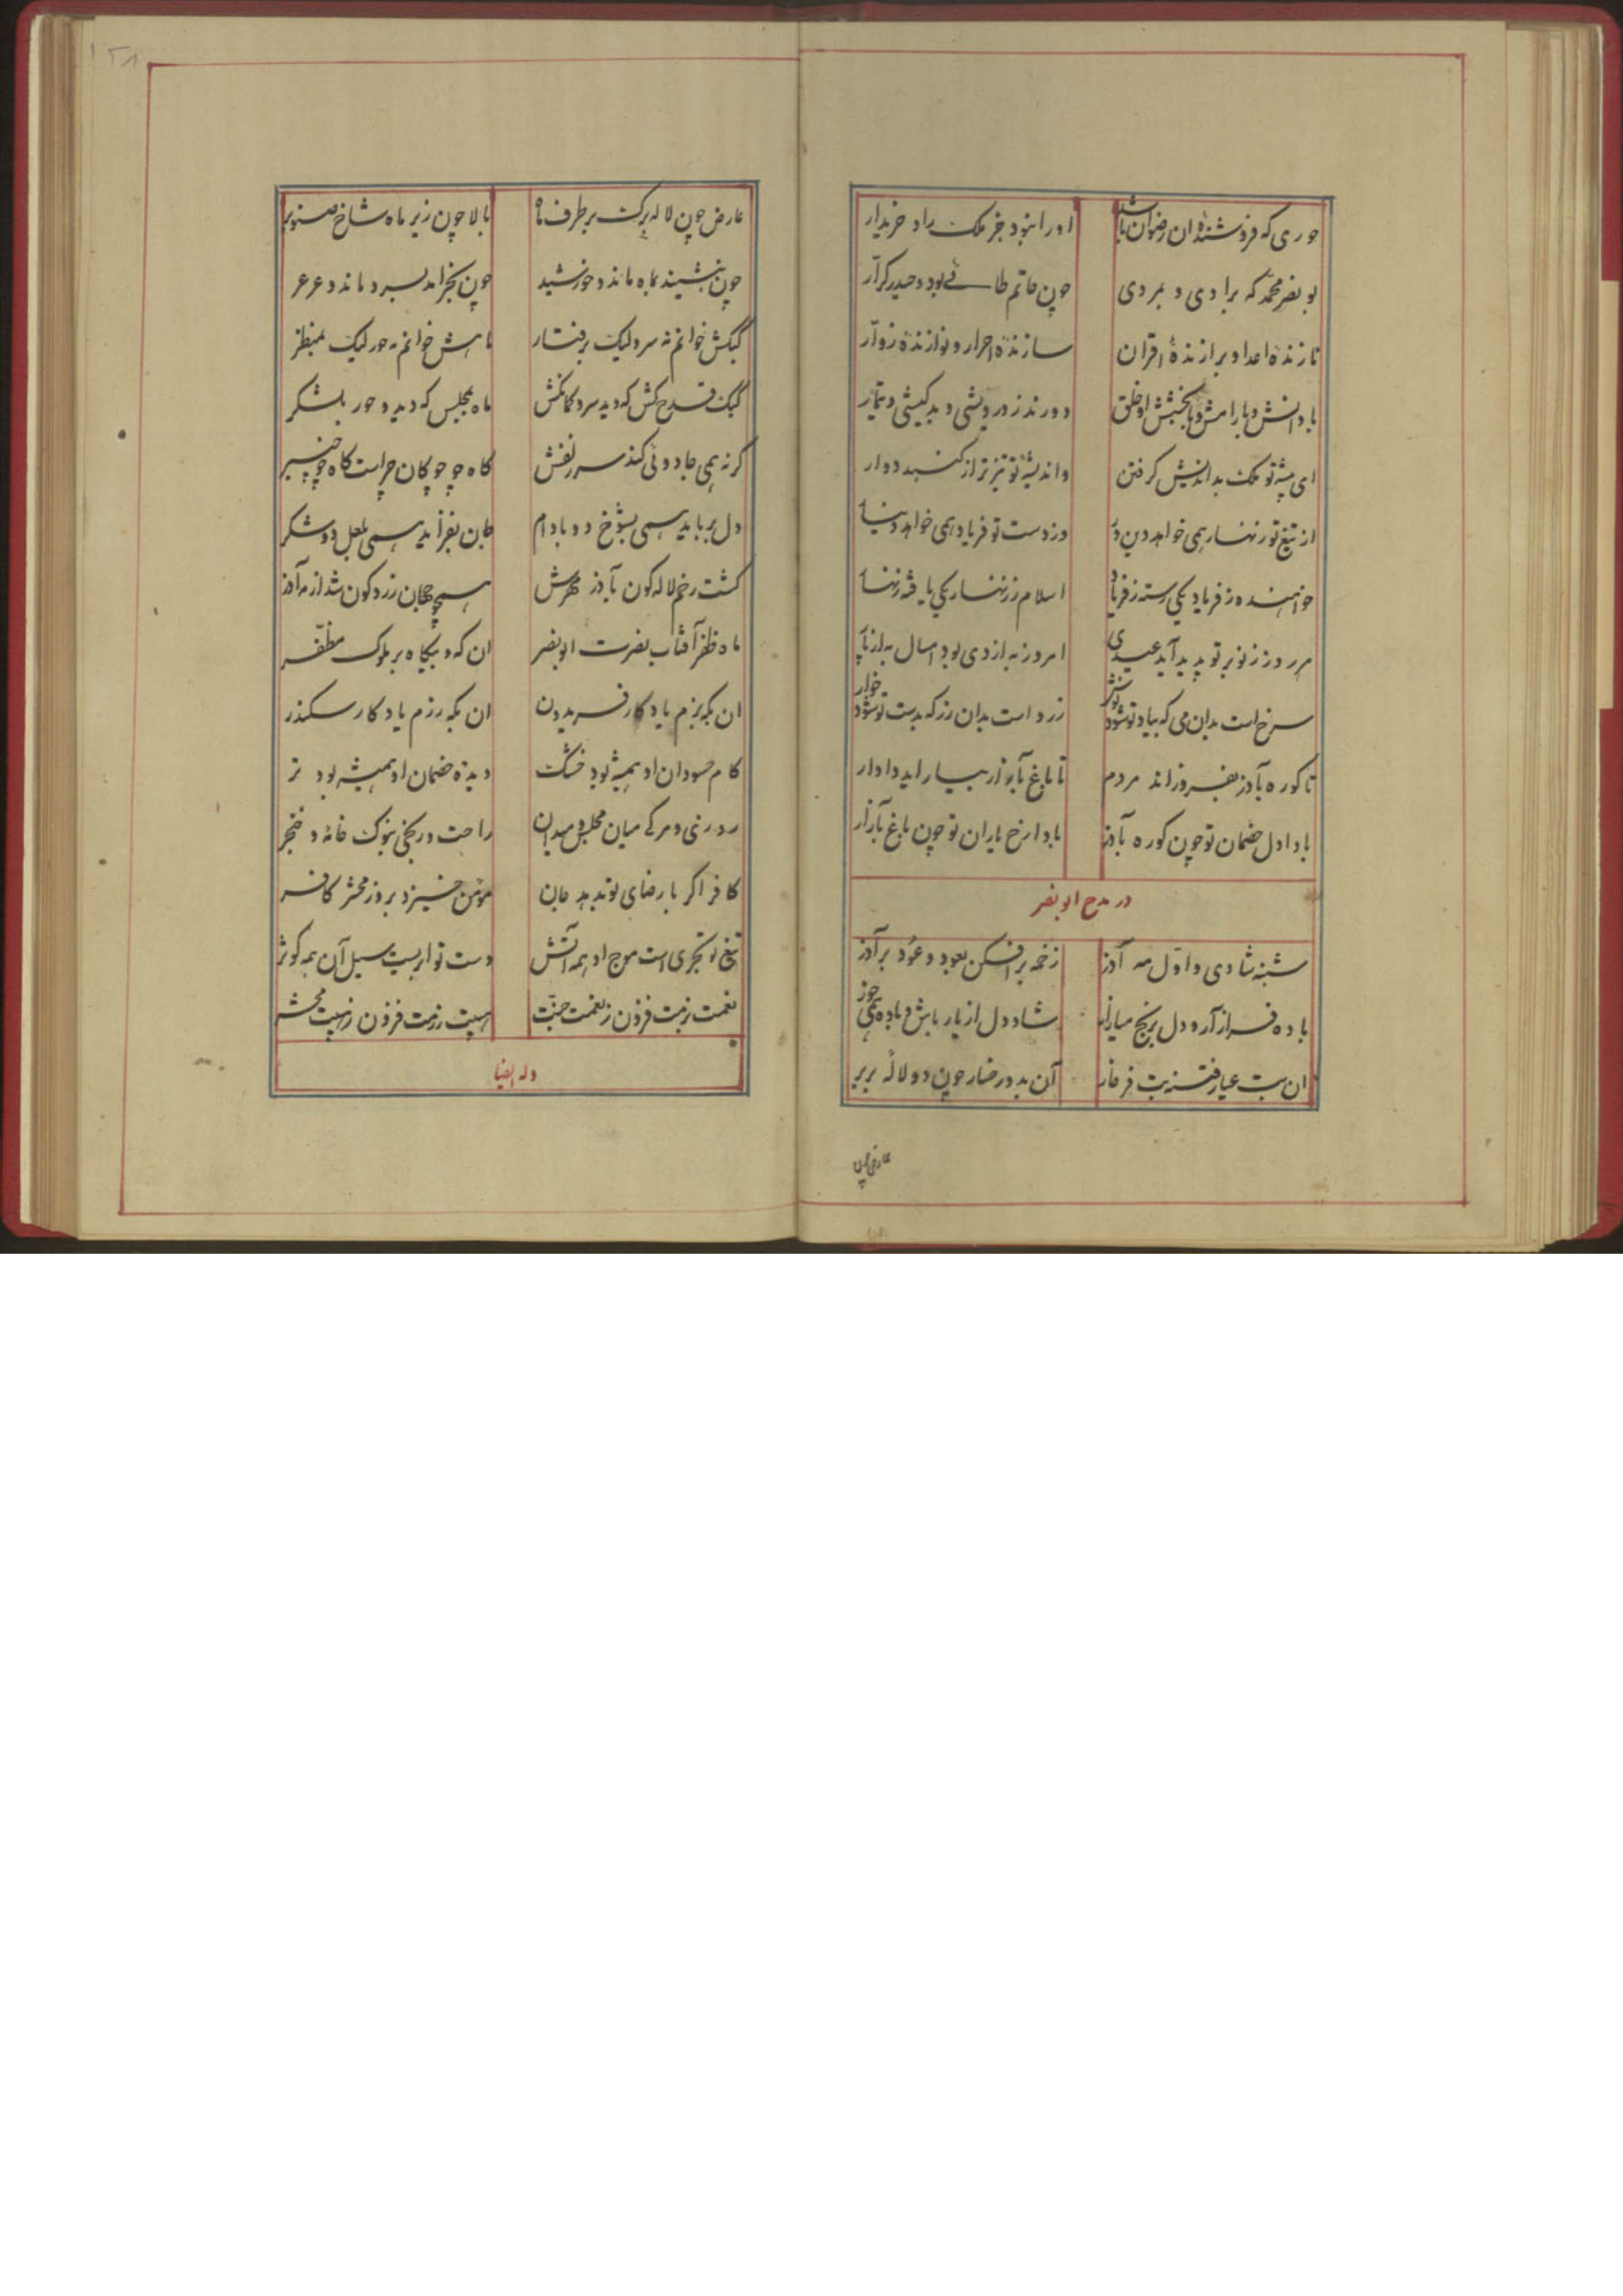 حوری که فروشندهٔ ان رضوان باشد اورا نبود جز ملک راد خریدار
بو نصر محمد که برادی و بمردی چون حاتم طائی بود و حیدر کرّار
تازندهٔ اعدا و برازندهٔ اقران سازندهٔ احرار و نوازندهٔ زوّار
با دانش و با رامش و با بخشش او خلق دورند ز درویشی و بد کیشی و تیمار
ای پیشهٔ تو ملک بداندیش گرفتن واندیشهٔ تو تیزتر از گنبد دوار
از تیغ تو زنهار همی خواهد دین‌دار وز دست تو فریاد همی خواهد دینار
خواهنده ز فریاد یکی رسته ز فریاد اسلام ز زنهار یکی یافته زنهار
هر روز ز نو بر تو پدید آید عیدی امروز به از دی بود امسال به از پار
سرخ است بدان می که بیاد تو شود نوش زرد است بدان زر که بدست تو شود خوار
تا کوره بآذر بفروزاند مردم تا باغ بآزار بیاراید دادار
بادا دل خصمان تو چون کوره بآذر بادا رخ یاران تو چون باغ بآزار
در مدح ابو نصر
شنبه شادی و اول مه آذر زخمه برافکن بعود و عود برآذر
باده فراز آر و دل برنج میازار شاد دل از یار باش و باده همی خور
ان بت عیار فتنه بت فرخار آن بدو رخسار چون دو لاله بربر
عارض چون
عارض چون لاله برگ بر طرف ماه بالا چون زیر ماه شاخ صنوبر
چون بنشیند بماه ماند و خورشید چون بخرامد بسرو ماند و عرعر
کبکش خوانم نه سرو لیک برفتار ماهش خوانم نه حور لیک بمنظر
کبک قدح کش که دید سرو کمانکش ماه بمجلس که دید و حور بلشکر
گر نه همی جادوئی کند سر زلفش گاه چو چوگان چراست گاه چو چنبر
دل برباید همی بشوخ دو بادام جان بفزاید همی بلعل دو شکر
گشت رخم لاله گون بآذر مهرش همچو جهان زرد گون شد از مه آذر
ماه ظفر آفتاب نصرت ابو نصر ان که و بیگاه بر ملوک مظفّر
ان بگه بزم یادگار فریدون ان بگه رزم یادگار سکندر
کام حسودان او همیشه بود خشک دیدهٔ خصمان او همیشه بود تر
روزی و مرگی میان مجلس و میدان راحت و رنجی بنوک خامه و خنجر
کافر اگر با رضای تو بدهد جان مؤمن خیزد بروز محشر کافر
تیغ تو بحری است موج او همه آتش دست تو ابریست سیل آن همه کوثر
نعمت بزمت فزون ز نعمت جنّت هیبت رزمت فزون ز هیبت محشر
وله ایضا